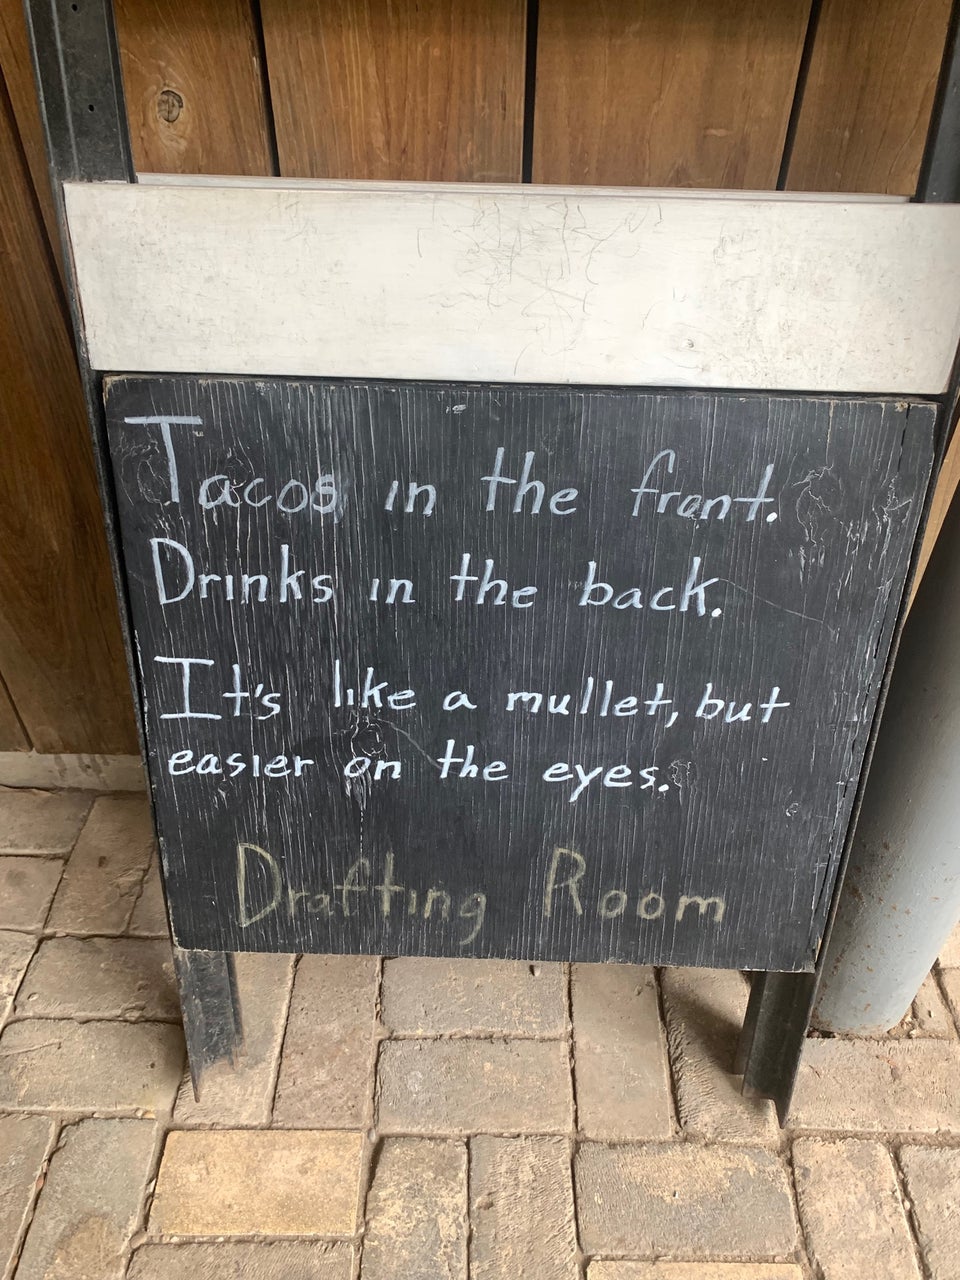 Tacos in the front.
Drinks in the back.
It's like a mullet, but
easier on the eyes.
Drafting Room